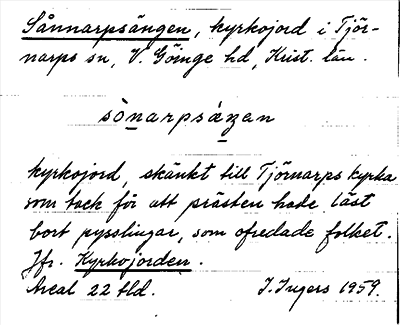 Sånnarpsängen, kyrkojord i Tjör-
narps sn, V. Göinge hd, Krist. län.
sònarpsáŋan
kyrkojord, skänkt till Tjörnarps kyrka
som tack för att prästen hade läst
bort pysslingar, som ofredade folket.
Jfr. Kyrkojorden.
Areal 22 tld. I. Ingers 1959.